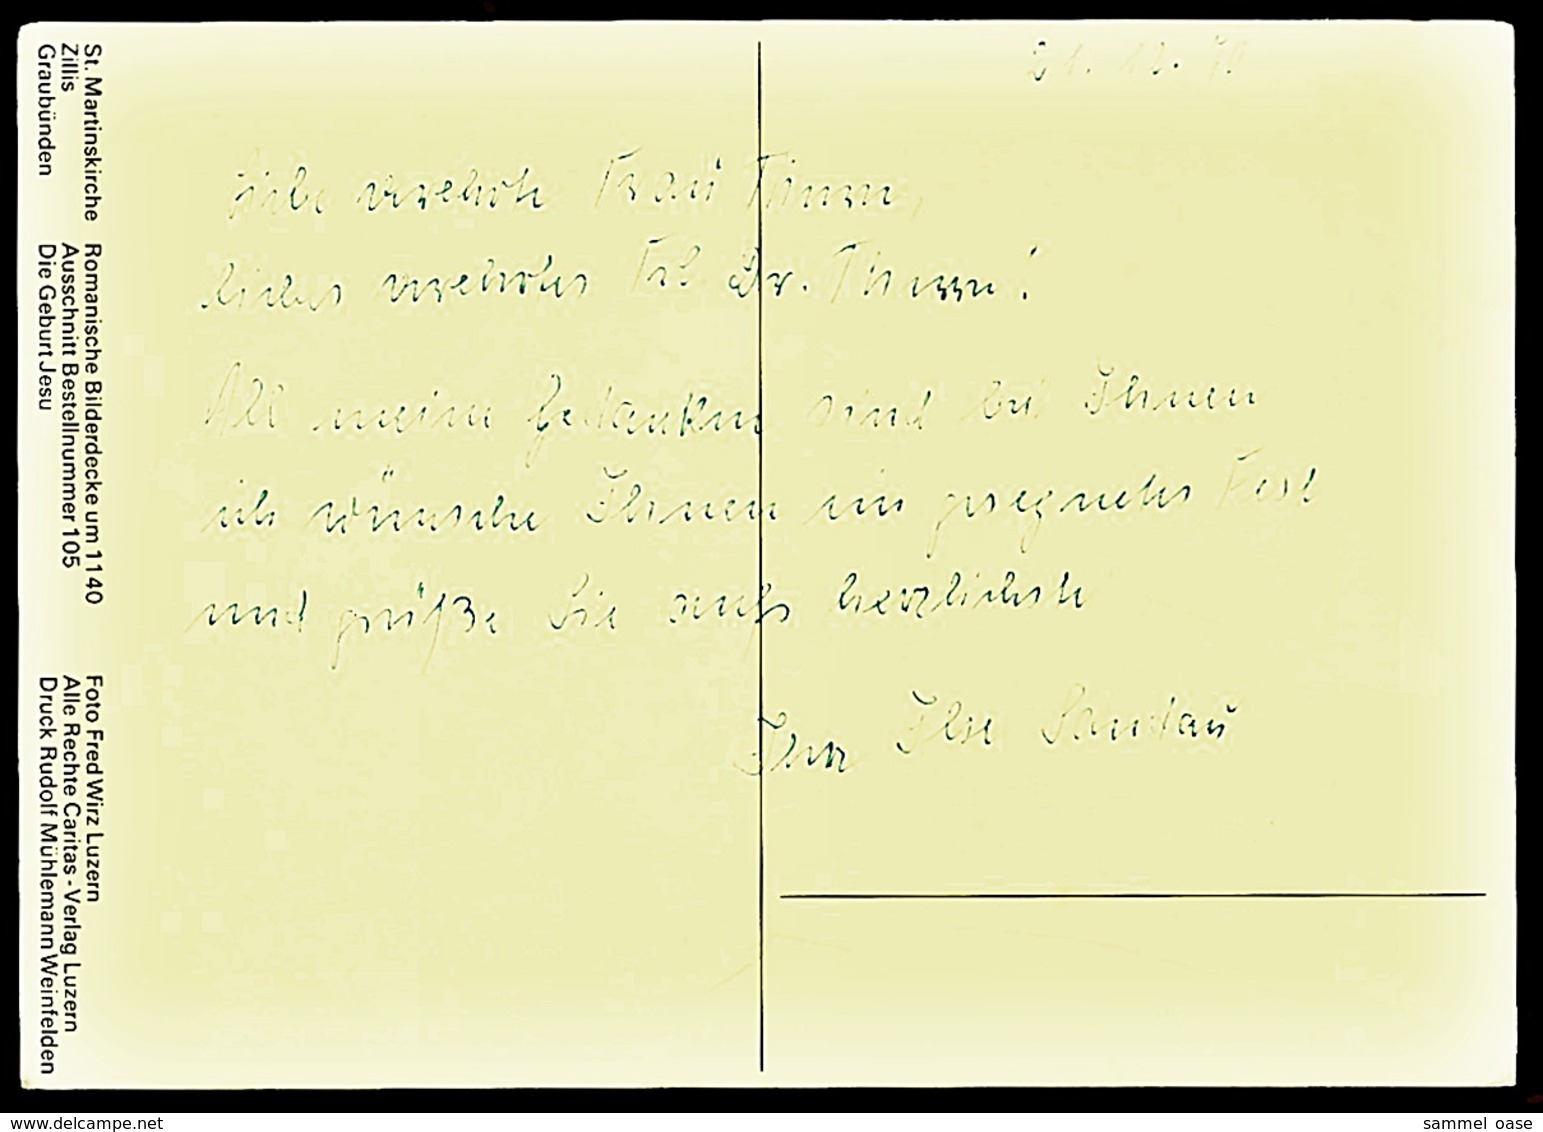 21. 12. 7
Liebe verehrte Frau Timm,
Liebes verehrtes Frl Dr. Thimm!
All meine Gedanken sind bei Ihnen
ich wünsche Ihnen ein gesegnetes Fest
und grüße Sie aufs herzlichste
Ihre Ilse Sandau
St. Martinskirche
Zillis
Graubünden
Romanische Bilderdecke um 1140
Ausschnitt Bestellnummer 105
Die Geburt Jesu
Foto Fred Wirz Luzern
Alle Rechte Caritas - Verlag Luzern
Druck Rudolf Mühlemann Weinfelden
www.delcampe.net
sammel_oase